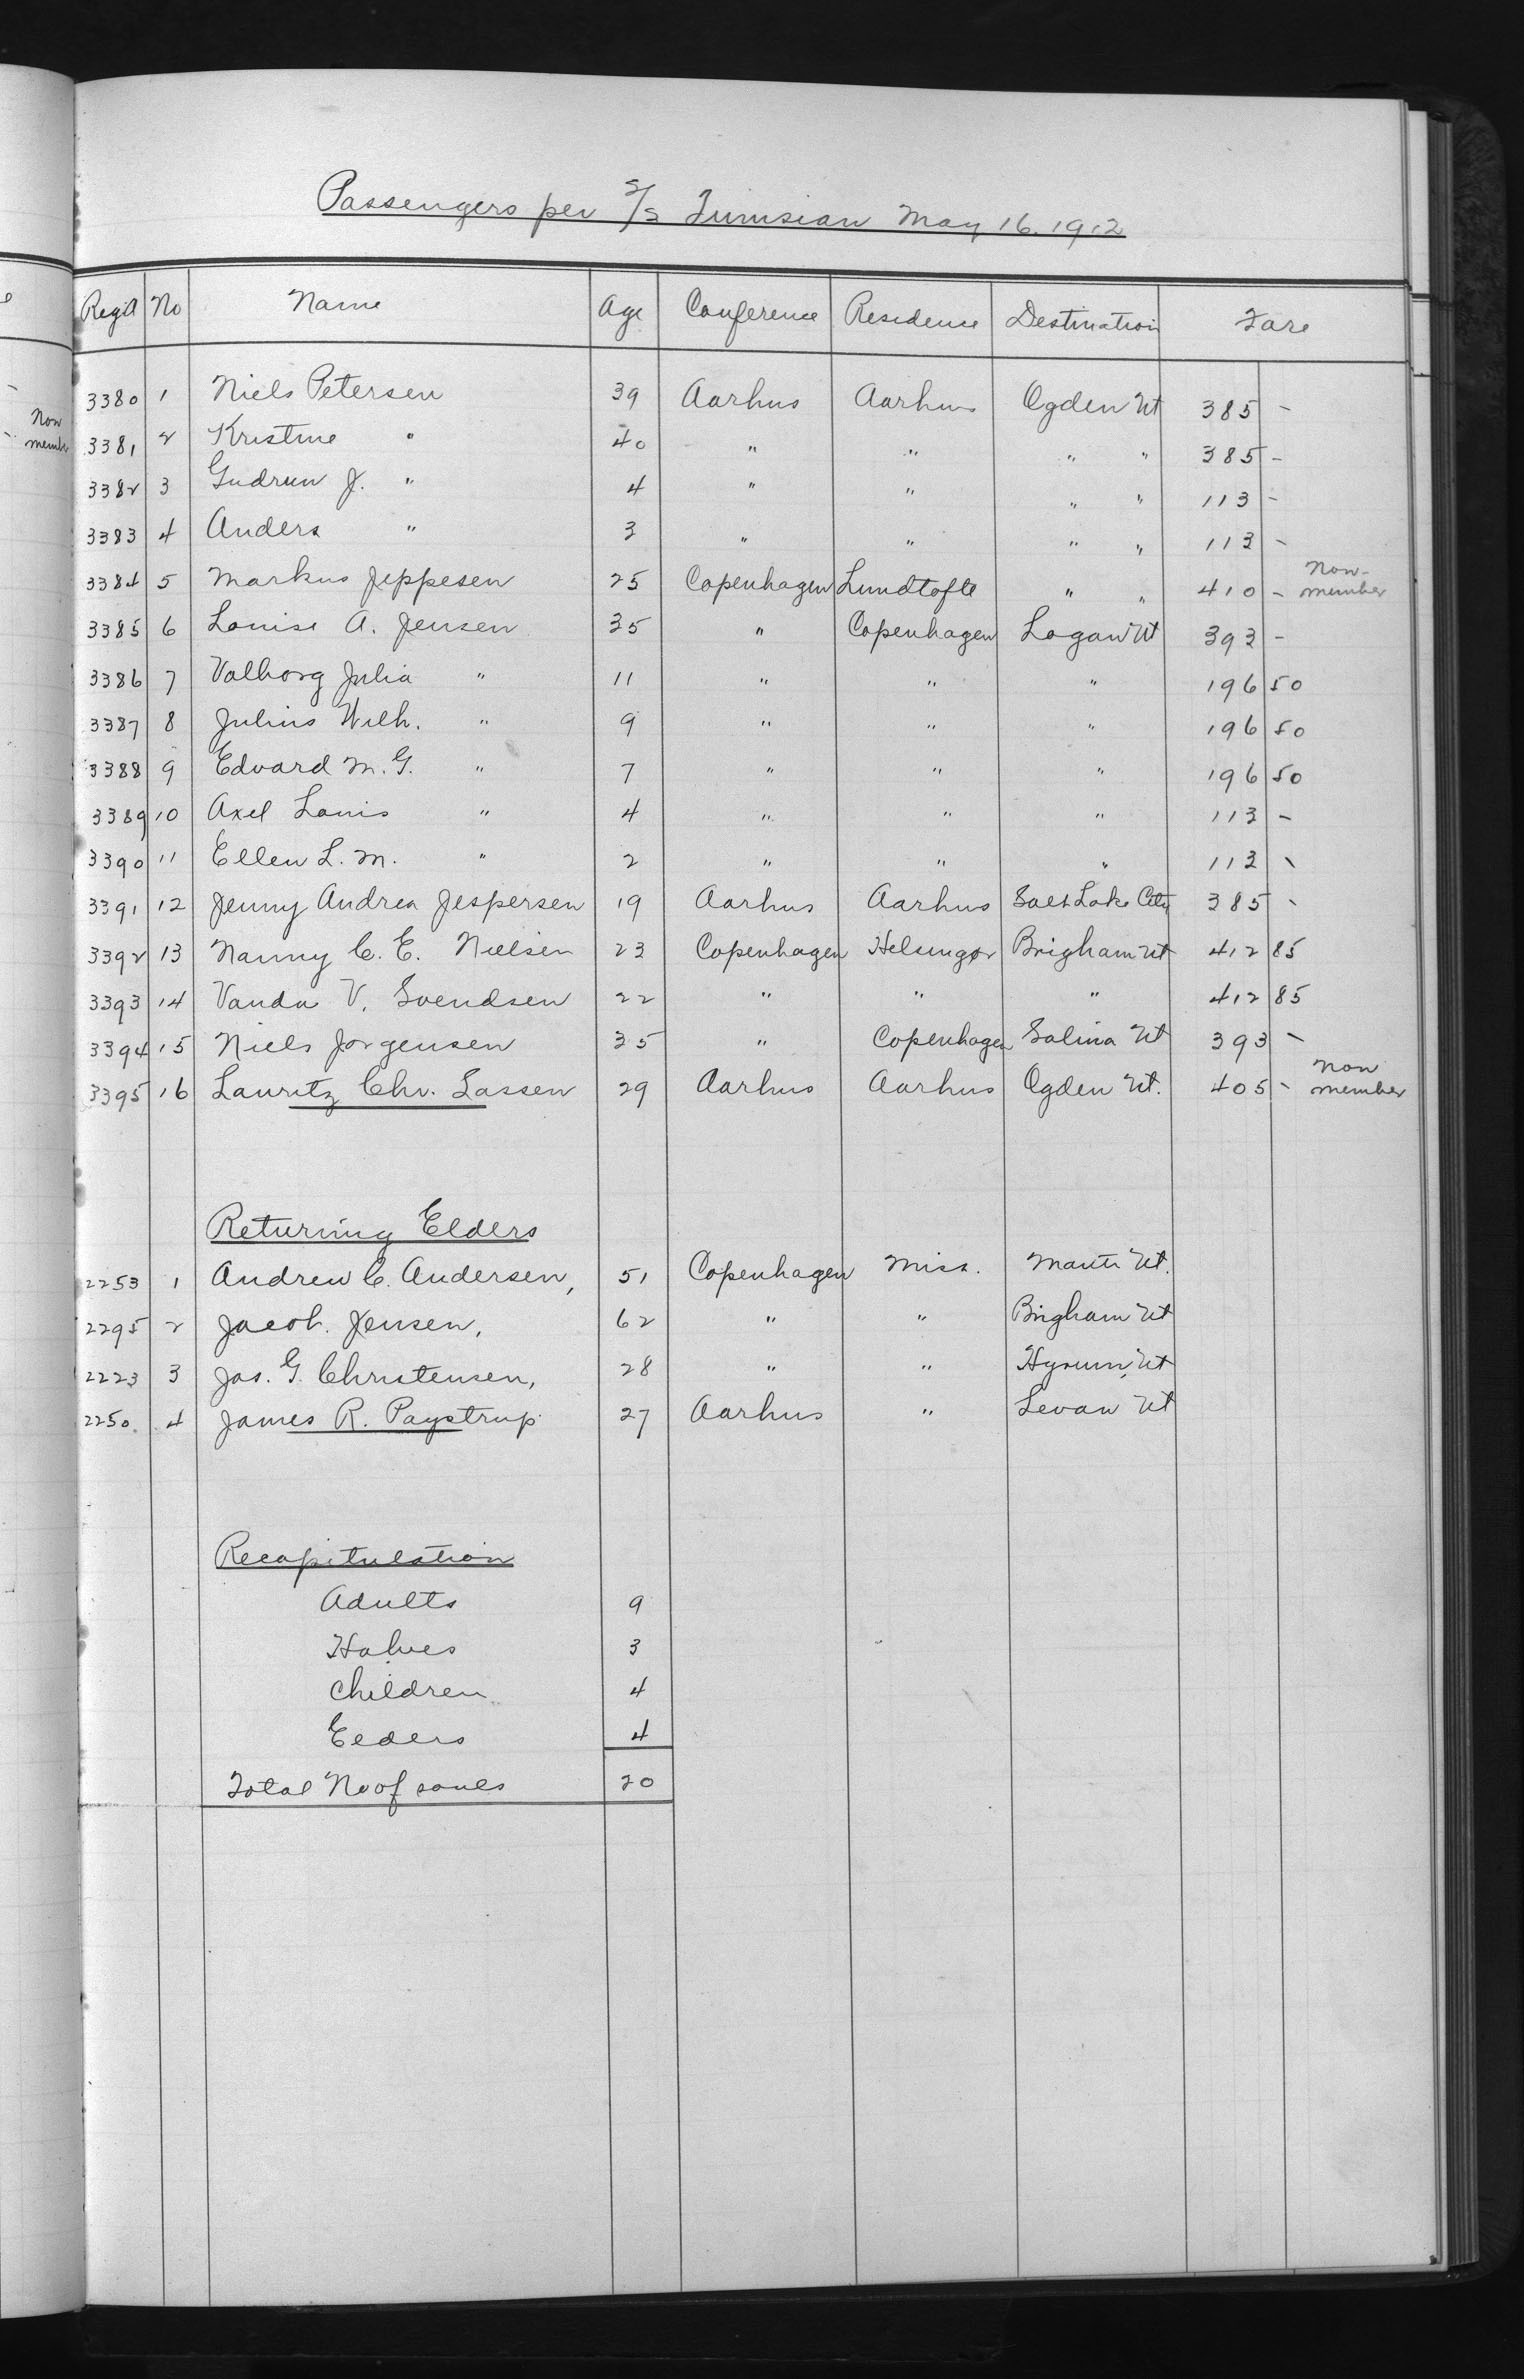 Passengers per S/S Tunisian May 16. 1912
Reg'd No Name Age Conference Residence Destination Fare
3380 1 Niels Petersen 39 Aarhus Aarhus Ogden Ut 385 -
3381 2 Kristine " 40 " " " " 385 -
3382 3 Gudrun J. " 4 " " " " 113 -
3383 4 Anders " 3 " " " " 113 -
3384 5 Markus Jeppesen 25 Copenhagen Lundtofte " " 410 - Non-member
3385 6 Louise A. Jensen 35 " Copenhagen Logan Ut 393 -
3386 7 Valborg Julia " 11 " " " 196 50
3387 8 Julius Wilh. " 9 " " " 196 50
3388 9 Edvard M. G. " 7 " " " 196 50
3389 10 Axel Louis " 4 " " " 113 -
3390 11 Ellen L. M. " 2 " " " 113 -
3391 12 Jenny Andrea Jespersen 19 Aarhus Aarhus Salt Lake City 385 -
3392 13 Nanny C. E. Nielsen 23 Copenhagen Helsingør Brigham Ut 412 85
3393 14 Vanda V. Svendsen 22 " " " 412 85
3394 15 Niels Jorgensen 35 " Copenhagen Salina Ut 393 -
3395 16 Lauritz Chr. Lassen 29 Aarhus Aarhus Ogden Ut. 405 - Non member
Returning Elders
2253 1 Andrew C. Andersen, 51 Copenhagen Miss. Manti Ut.
2295 2 Jacob. Jensen, 62 " " Brigham Ut
2223 3 Jas. G. Christensen, 28 " " Hyrum, Ut
2250. 4 James R. Paystrup 27 Aarhus " Levan Ut
Recapitulation
Adults 9
Halves 3
Children 4
Elders 4
Total No of souls 20
Non
member